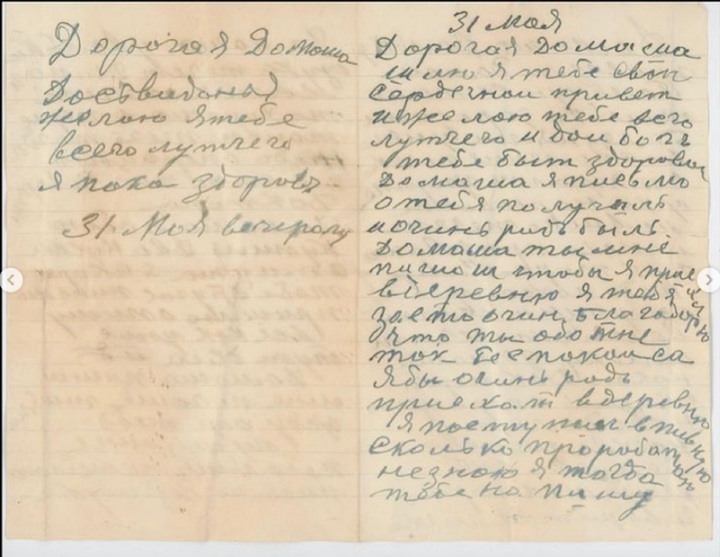 Дорогая Домаша
Досвиданья
желаю я тебе
всего лутчего
я пока здоровъ
31 Мая вечером
31 мая
Дорогая Домаша
шлю я тебе свои
сердечнои привет
и желаю тебе всего
лутчего и дои богъ
тебе быт здоровои
Домаша я письмо
о тебя получилъ
и очинь радъ былъ.
Домаша ты мне
пишош чтобы я прие
в деревню я тебя
за ето очин благодорю
что ты обо мне
так беспокоиса
я бы очинь радъ
приехатъ в деревню
я поступил в
сколько проработаю
незнаю я тогда
тебе напишу